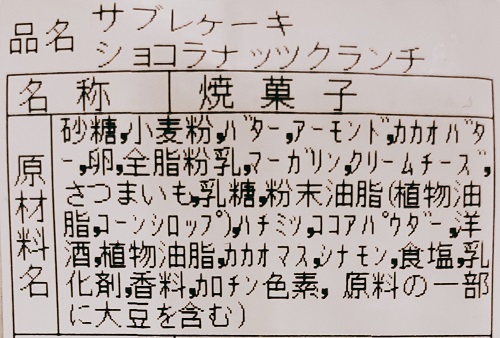 品名 サブレケーキ
ショコラナッツクランチ
名称 焼菓子
原材料名
砂糖,小麦粉,ﾊﾞﾀｰ,ｱｰﾓﾝﾄﾞ,ｶｶｵﾊﾞﾀ
ｰ,卵,全脂粉乳,ﾏｰｶﾞﾘﾝ,ｸﾘｰﾑﾁｰｽﾞ,
さつまいも,乳糖,粉末油脂(植物油
脂,ｺｰﾝｼﾛｯﾌﾟ),ﾊﾁﾐﾂ,ｺｺｱﾊﾟｳﾀﾞｰ,洋
酒,植物油脂,ｶｶｵﾏｽ,ｼﾅﾓﾝ,食塩,乳
化剤,香料,ｶﾛﾁﾝ色素, 原料の一部
に大豆を含む)